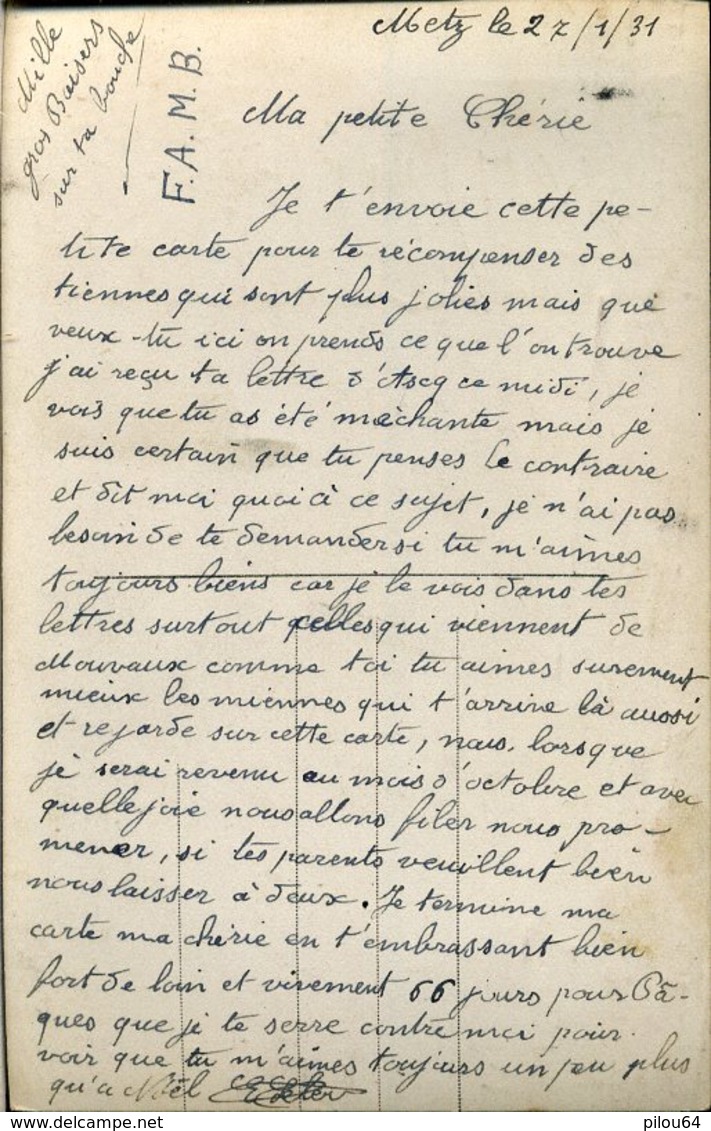 Metz le 27/1/31
Mille
gros Baisers
sur ta bouche
F.A.M.B.
Ma petite Chérie
Je t'envoie cette pe-
tite carte pour te récompenser des
tiennes qui sont plus jolies mais que
veux-tu ici on prends ce que l'on trouve
j'ai reçu ta lettre d'Ascq ce midi, je
vois que tu as été méchante mais je
suis certain que tu penses le contraire
et dit moi quoi à ce sujet, je n'ai pas
besoin de te demander si tu m'aimes
toujours biens car je le vois dans tes
lettres surtout celles qui viennent de
Mouvaux comme toi tu aimes surement
mieux les miennes qui t'arrive là aussi
et regarde sur cette carte, nous, lorsque
je serai revenu au mois d'octobre et avec
quelle joie nous allons filer nous pro-
mener, si tes parents veuillent bien
nous laisser à deux. Je termine ma
carte ma chérie en t'embrassant bien
fort de loin et vivement 66 jours pour Pâ-
ques que je te serre contre moi pour
voir que tu m'aimes toujours un peu plus
qu'a Noël
pilou64